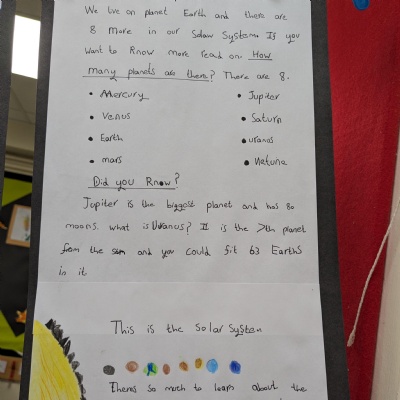 We live on planet Earth and there are
8 more in our Solaw System. If you
want to know more read on. How
many planets are there? There are 8.
• Mercury • Jupiter
• Venus • Saturn
• Earth • uranus
• mars • Netune
Did you Know?
Jupiter is the biggest planet and has 80
moons. what is Uranus? It is the 7th planet
from the sun and you could fit 63 Earths
in it
This is the Solar System
Theres so much to learn about the